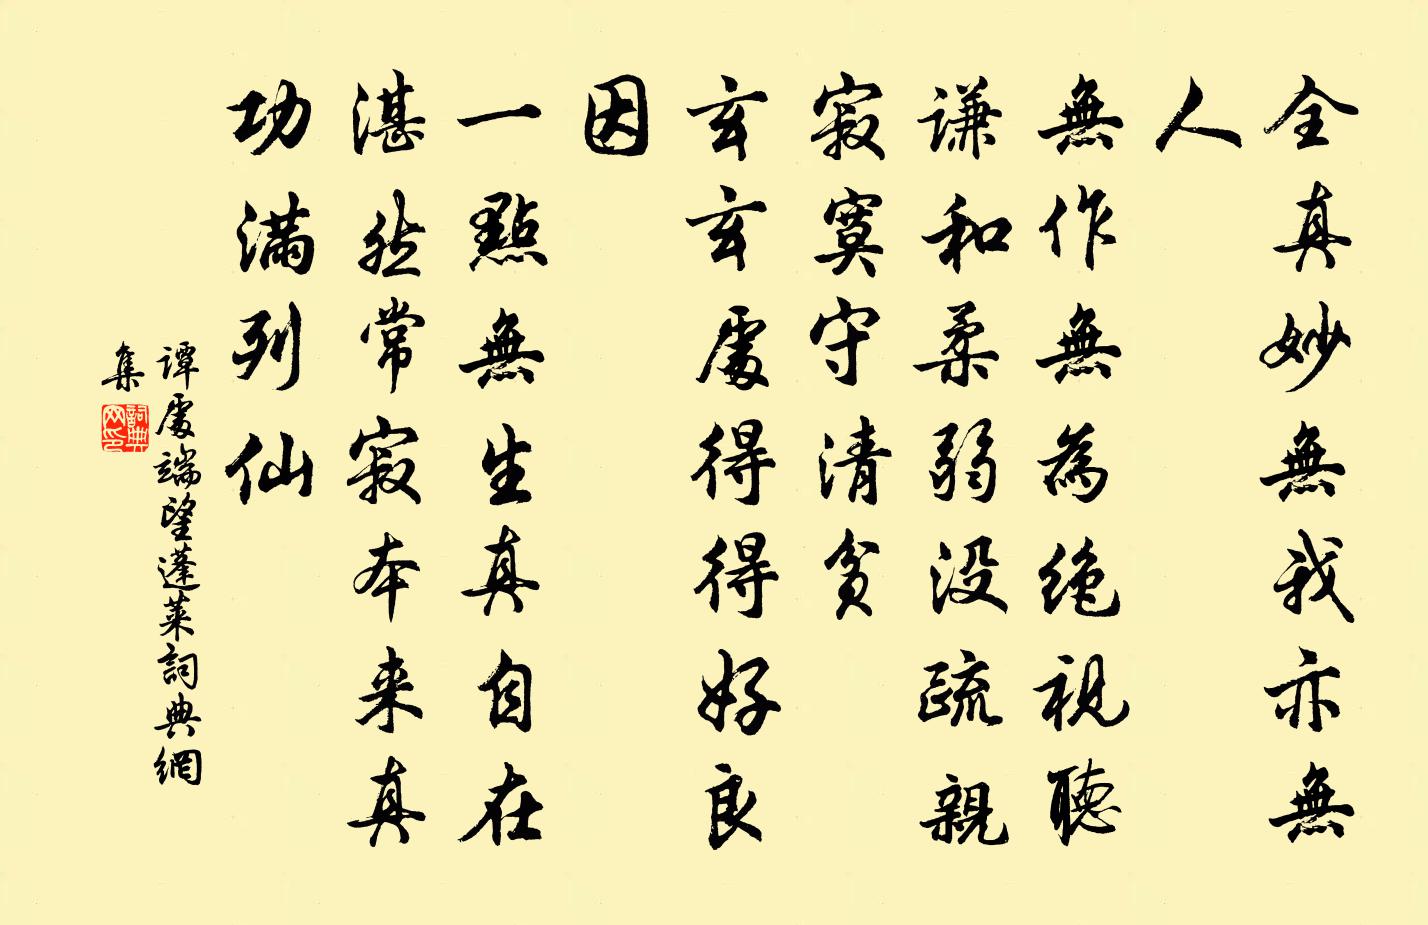 全真妙無我亦無
人
無作無為絶視聽
謙和柔弱没疏親
寂寞守清貧
玄玄處得得好良
因
一點無生真自在
湛然常寂本来真
功滿列仙
譚處端望蓬莱詞典網
集
詞典
网印